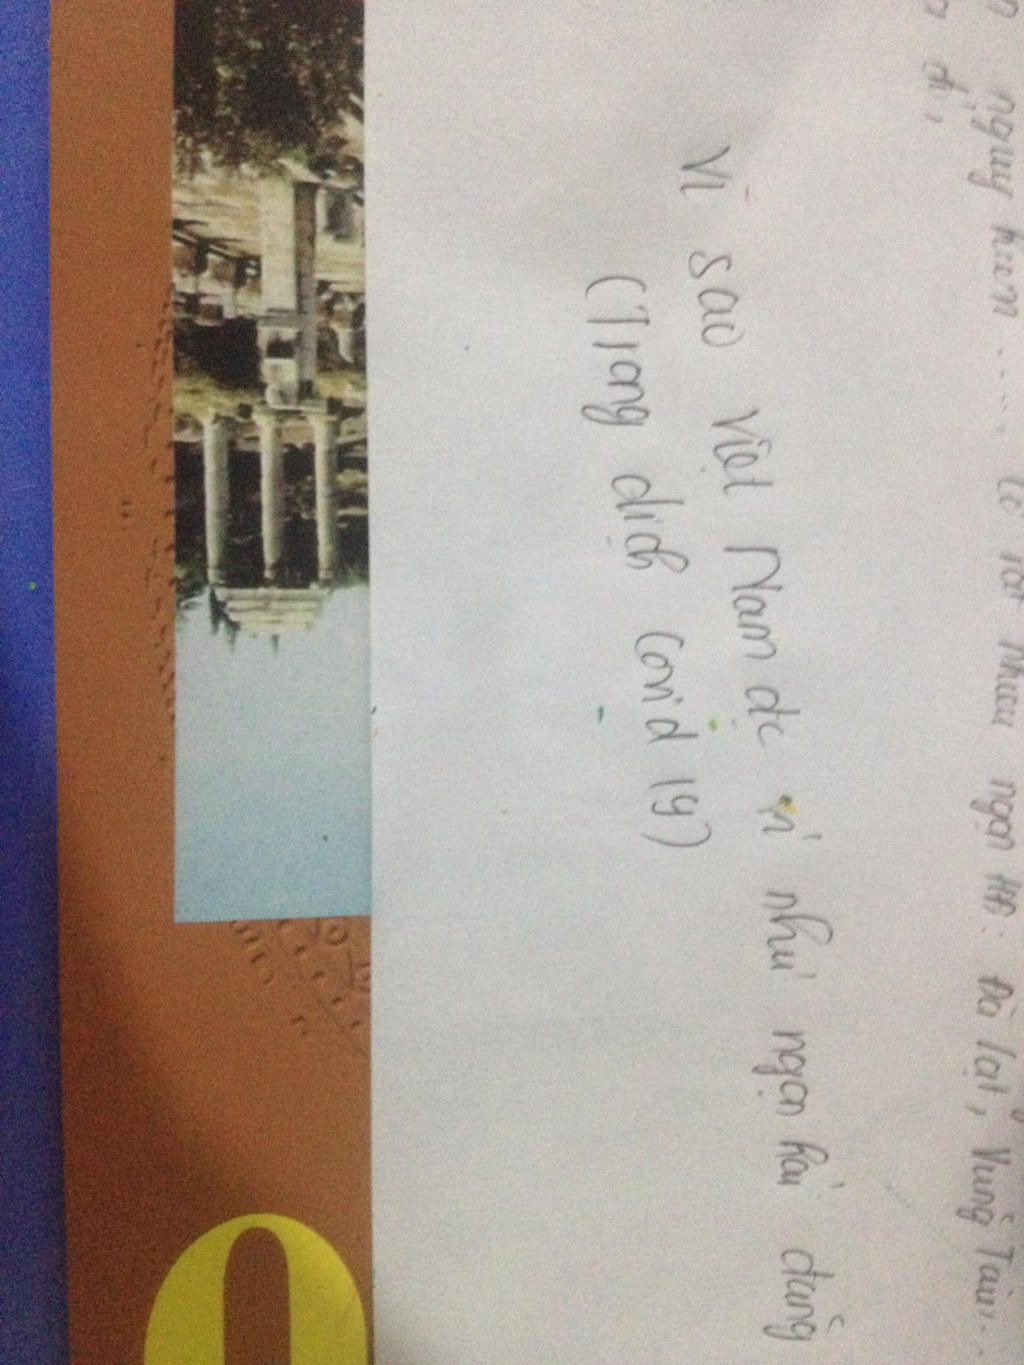 nguy hiểm ..... có rất nhiều ngọn HĐ: Đà lạt, Vũng Tàu..
đị,
Vì sao Việt Nam đc ví như ngọn hải đăng
(Trong dịch Covid 19)
0